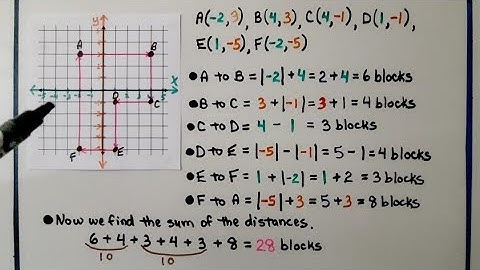 A(-2,3), B(4,3), C(4,-1), D(1,-1),
E(1,-5), F(-2,-5)
y
A
B
x
D
C
F
E
● A to B = |-2|+4 = 2+4 = 6 blocks
● B to C = 3+|-1| = 3+1 = 4 blocks
● C to D = 4 - 1 = 3 blocks
● D to E = |-5| - |-1| = 5 - 1 = 4 blocks
● E to F = 1 + |-2| = 1 + 2 = 3 blocks
● F to A = |-5|+3 = 5+3 = 8 blocks
● Now we find the sum of the distances.
6 + 4 + 3 + 4 + 3 + 8 = 28 blocks
10 10